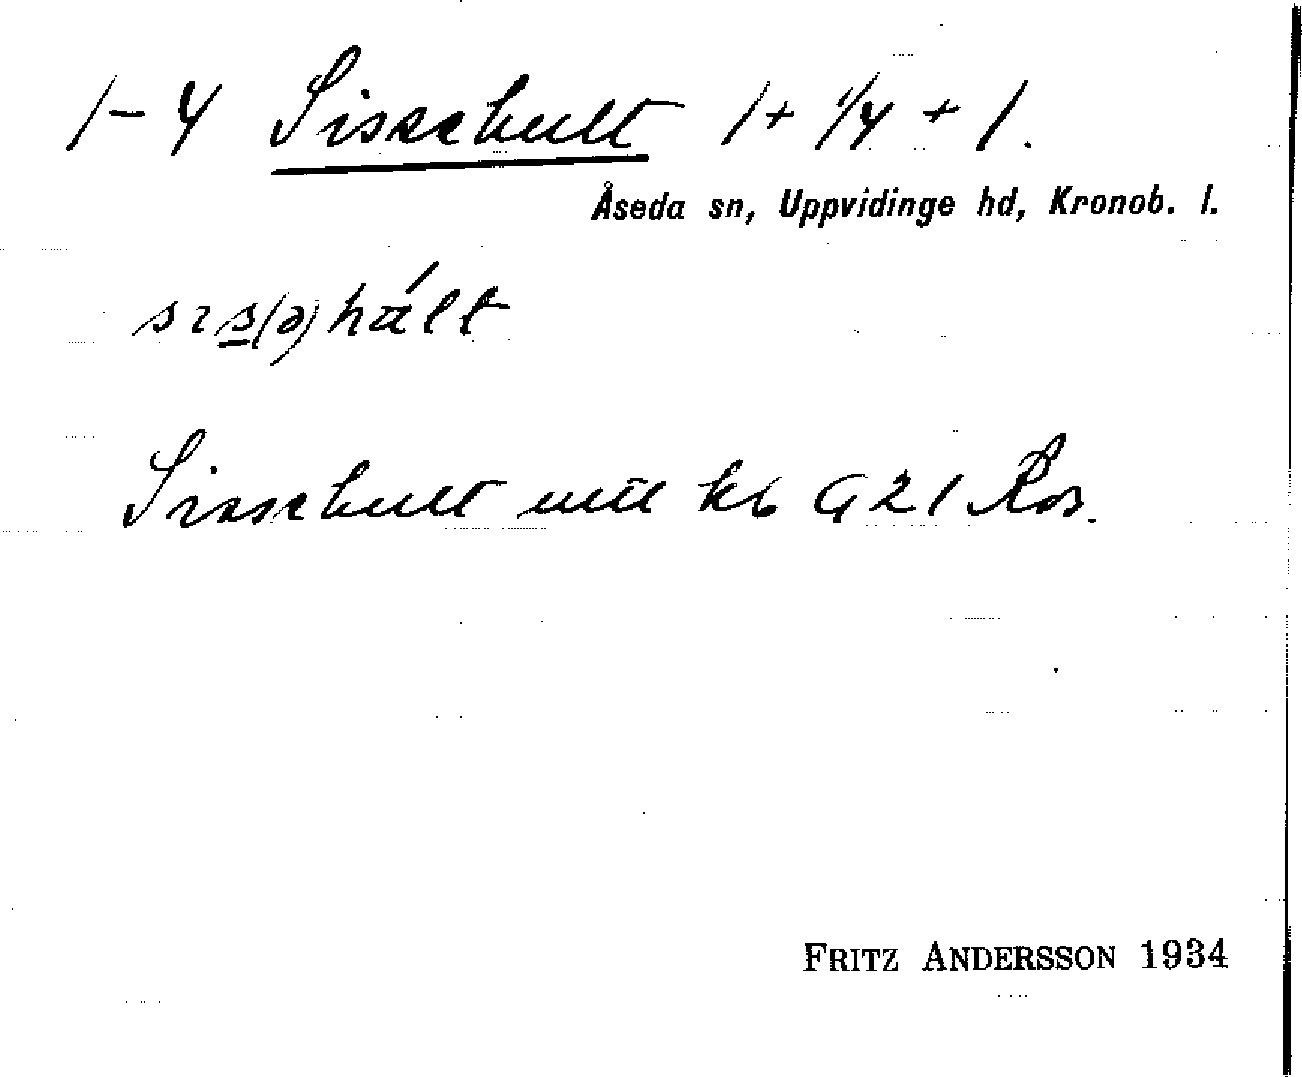 1-4 Sissehult 1 + 1/4 + 1.
Åseda sn, Uppvidinge hd, Kronob. l.
sɩs(ə)hált
Sissehult kb G 21 Ros.
FRITZ ANDERSSON 1934